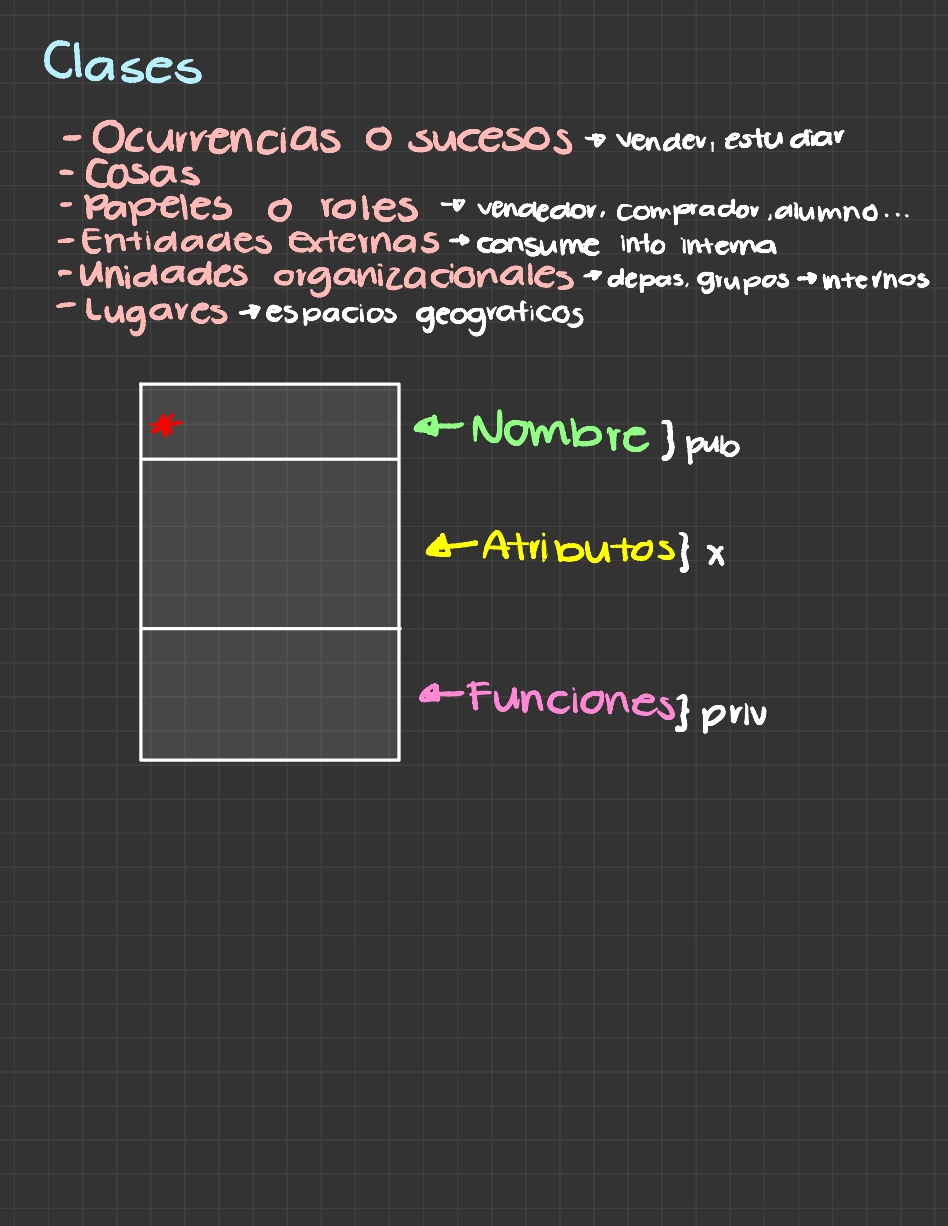 Clases
- Ocurrencias o sucesos → vender, estudiar
- Cosas
- Papeles o roles → vendedor, comprador, alumno...
- Entidades externas → consume info interna
- Unidades organizacionales → depas, grupos → internos
- Lugares → espacios geograficos
*
← Nombre } pub
← Atributos } x
← Funciones } priv